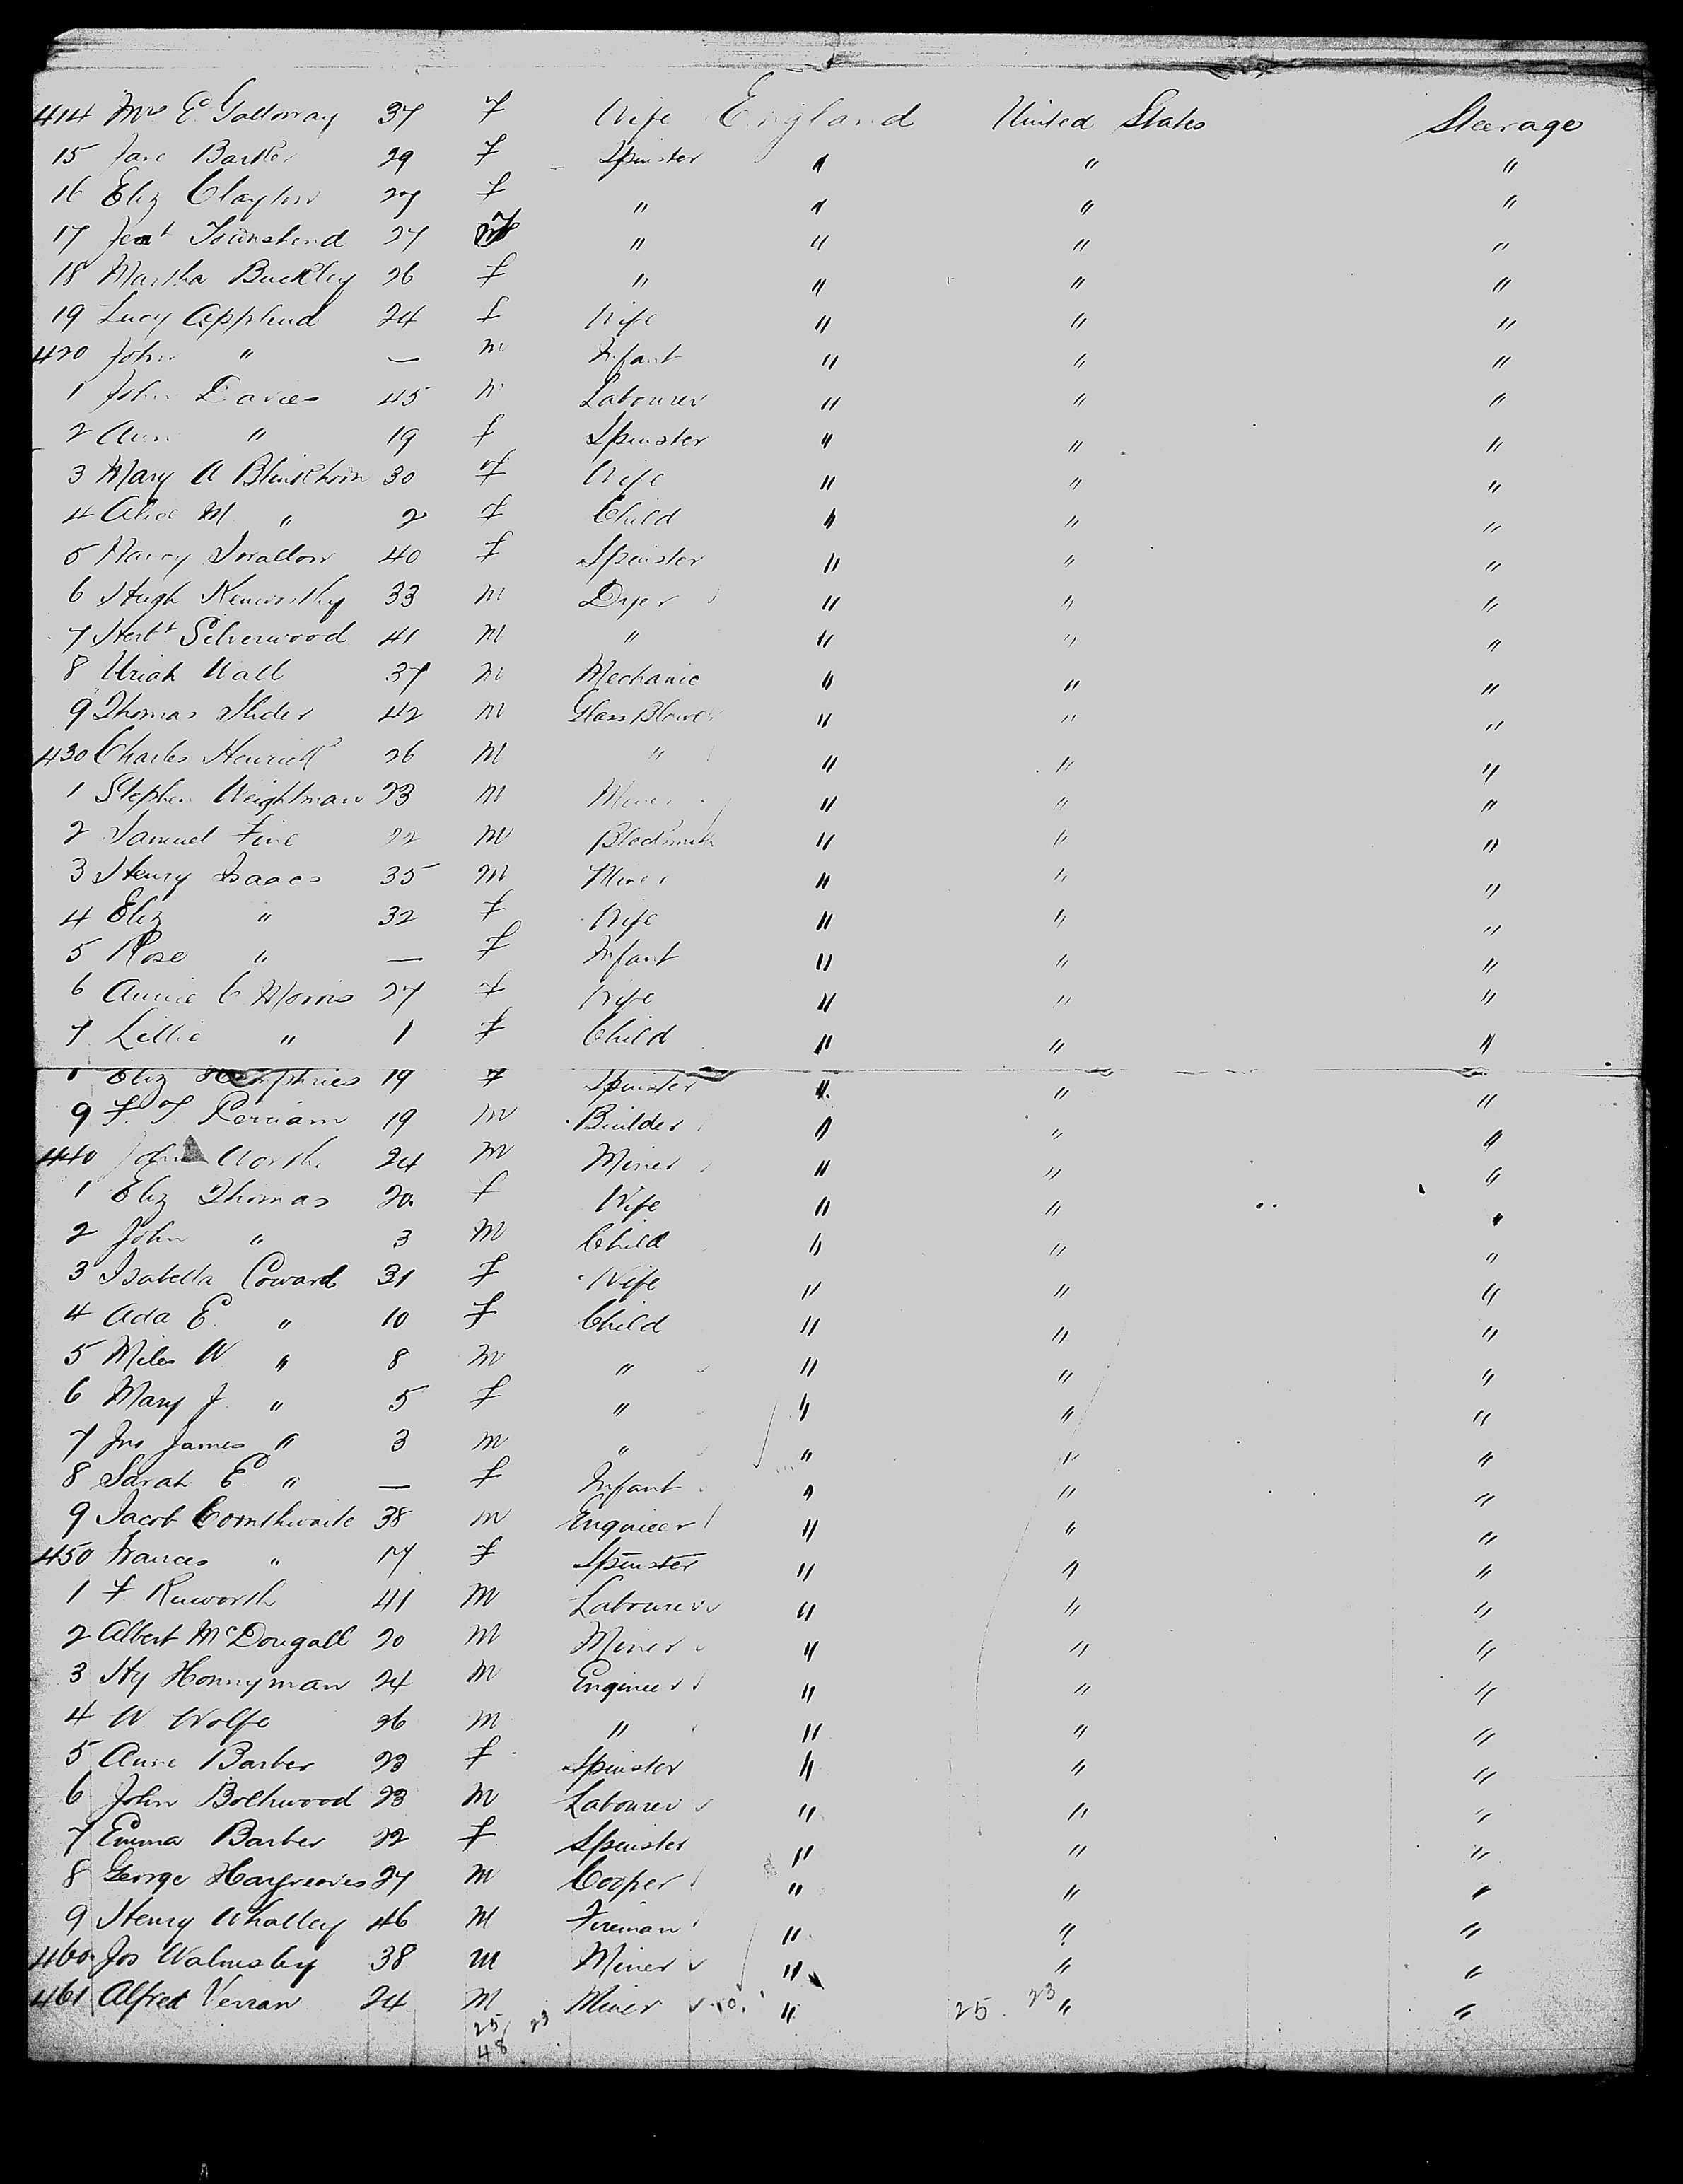 414 Mrs E Galloway 37 f Wife England United States Steerage
15 Jane Barker 29 f Spinster " " "
16 Eliz Clayton 27 f " " " "
17 Townshend 27 f " " " "
18 Martha Buckley 26 f " " " "
19 Lucy 24 f Wife " " "
420 John " — m Infant " " "
1 John Davies 45 m Labourer " " "
2 Ann " 19 f Spinster " " "
3 Mary A Blinkhorn 30 f Wife " " "
4 Alice M " 2 f Child " " "
5 Swallow 40 f Spinster " " "
6 Hugh Kenworthy 33 m Dyer " " "
7 Herbt Silverwood 41 m " " " "
8 Uriah Wall 37 m Mechanic " " "
9 Thomas 42 m Glass Blower " " "
430 Charles 26 m " " " "
1 Stephen Weightman 23 m Miner " " "
2 Samuel 22 m Blacksmith " " "
3 Henry Isaacs 35 m Miner " " "
4 Eliz " 32 f Wife " " "
5 Rose " — f Infant " " "
6 Annie C Morris 27 f Wife " " "
7 Lillie " 1 f Child " " "
8 Eliz Humphries 19 f Spinster " " "
9 F. T. Perriam 19 m Builder " " "
440 John North 24 m Miner " " "
1 Eliz Thomas 20 f Wife " " "
2 John " 3 m Child " " "
3 Isabella Coward 31 f Wife " " "
4 Ada E. " 10 f Child " " "
5 Miles W " 8 m " " " "
6 Mary J. " 5 f " " " "
7 Jno James " 3 m " " " "
8 Sarah E. " — f Infant " " "
9 Jacob Cornthwaite 38 m Engineer " " "
450 Frances " 17 f Spinster " " "
1 F. 41 m Labourer " " "
2 Albert McDougall 20 m Miner " " "
3 Hy Honnyman 24 m Engineer " " "
4 W. Wolfe 26 m " " " "
5 Anne Barber 23 f Spinster " " "
6 John Bolhwood 23 m Labourer " " "
7 Emma Barber 22 f Spinster " " "
8 George Hargreaves 27 m Cooper " " "
9 Henry Whalley 46 m Fireman " " "
460 Jos Walmsley 38 m Miner " " "
461 Alfred Verran 24 m Miner " 25 23 " "
25 23
48